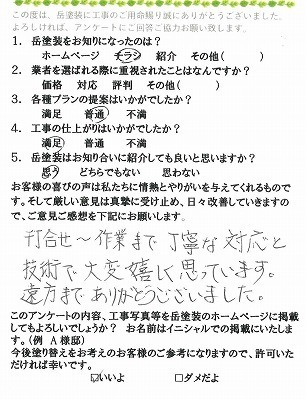 この度は、岳塗装に工事のご用命賜り誠にありがとうございました。
よろしければ、アンケートにご回答ご協力お願い致します。
1.岳塗装をお知りになったのは?
ホームページ チラシ 紹介 その他( )
2.業者を選ばれる際に重視されたことはなんですか?
価格 対応 評判 その他( )
3.各種プランの提案はいかがでしたか?
満足 普通 不満
4.工事の仕上がりはいかがでしたか?
満足 普通 不満
5.岳塗装はお知り合いに紹介しても良いと思いますか?
思う どちらでもない 思わない
お客様の喜びの声は私たちに情熱とやりがいを与えてくれるもので
す。そして厳しい意見は真摯に受け止め、日々改善していきますの
で、ご意見ご感想を下記にお願いします。
打合せ~作業まで丁寧な対応と
技術で大変嬉しく思っています。
遠方までありがとうございました。
このアンケートの内容、工事写真等を岳塗装のホームページに掲載
してもよろしいでしょうか? お名前はイニシャルでの掲載にいたしま
す。(例 A様邸)
今後塗り替えをお考えのお客様のご参考になりますので、許可いた
だければ幸いです。
☑いいよ □ダメだよ